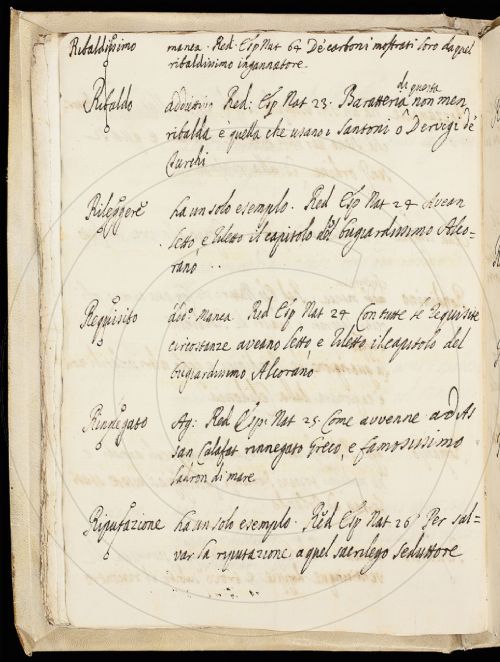 Ribaldissimo manca. Red. Esp Nat 64 De carboni mostrati loro da quel
ribaldissimo ingannatore.
Ribaldo addiettivo Red: Esp Nat 23. Baratteria di questa non men
ribalda è quella che usano i Santoni ô Dervigi dè
Turchi
Rileggere ha un solo esempio. Red Esp Nat 24 Avean
letto, e riletto il capitolo del bugiardissimo Alco=
rano
Requisito add.º Manca. Red Esp Nat 24 Con tutte le requisite
circostanze aveano letto e riletto il capitolo del
bugiardissimo Alcorano
Rinnegato Ag: Red Esp: Nat 25. Come avvenne ad As
san Calafat rinnegato Greco, e famosissimo
ladron di mare
Riputazione ha un solo esempio. Red Esp Nat 26 Per sal=
var la riputazione a quel sacrilego seduttore